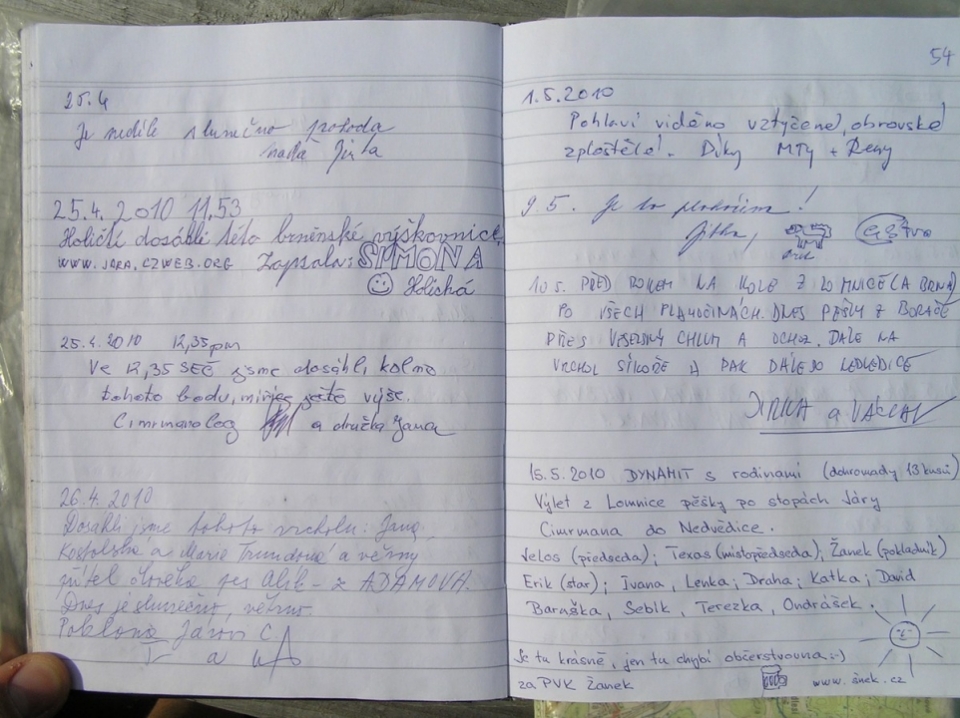 25.4
Je neděle slunečno pohoda
Jirka
25.4. 2010 11.53
Holičtí dosáhli této brněnské výškovnice,
www.jara.czweb.org Zapsala: SIMONA
Holická
25.4.2010 12,35pm
Ve 12,35 SEČ jsme dosáhli, kolmo
tohoto bodu, ještě výše.
Cimrmanolog a družka Jana
26.4.2010
Dosáhli jsme tohoto vrcholu: Jana
a Marie a věčný
přítel člověka pes Alík - z ADAMOVA.
Dnes je slunečný, větrno
Poklona Járovi C.
a
54
1.5.2010
Pohlaví viděno vztyčené, obrovské
zploštělé. Díky MTy +
9.5. Je to !
Jitka,
10.5. PŘED ROKEM NA KOLE Z LOMNICE (A BRNA)
PO VŠECH PLANDINÁCH. DNES PĚŠKY Z BORAČE
PŘES VESELSKÝ CHLUM A OCHOZ. DÁLE NA
VRCHOL SÝKOŘE A PAK DÁLE DO NEDVĚDICE
JIRKA a VÁCLAV
15.5.2010 DYNAMIT s rodinami (dohromady 13 kusů)
Výlet z Lomnice pěšky po stopách Járy
Cimrmana do Nedvědice.
Velos (předseda); Texas (místopředseda); Žanek (pokladník)
Erik (star); Ivana, Lenka; Draha; Katka; David
Baruška, Sebík, Terezka, Ondrášek.
Je tu krásně, jen tu chybí občerstvovna :-)
za PVK Žanek www.šnek.cz